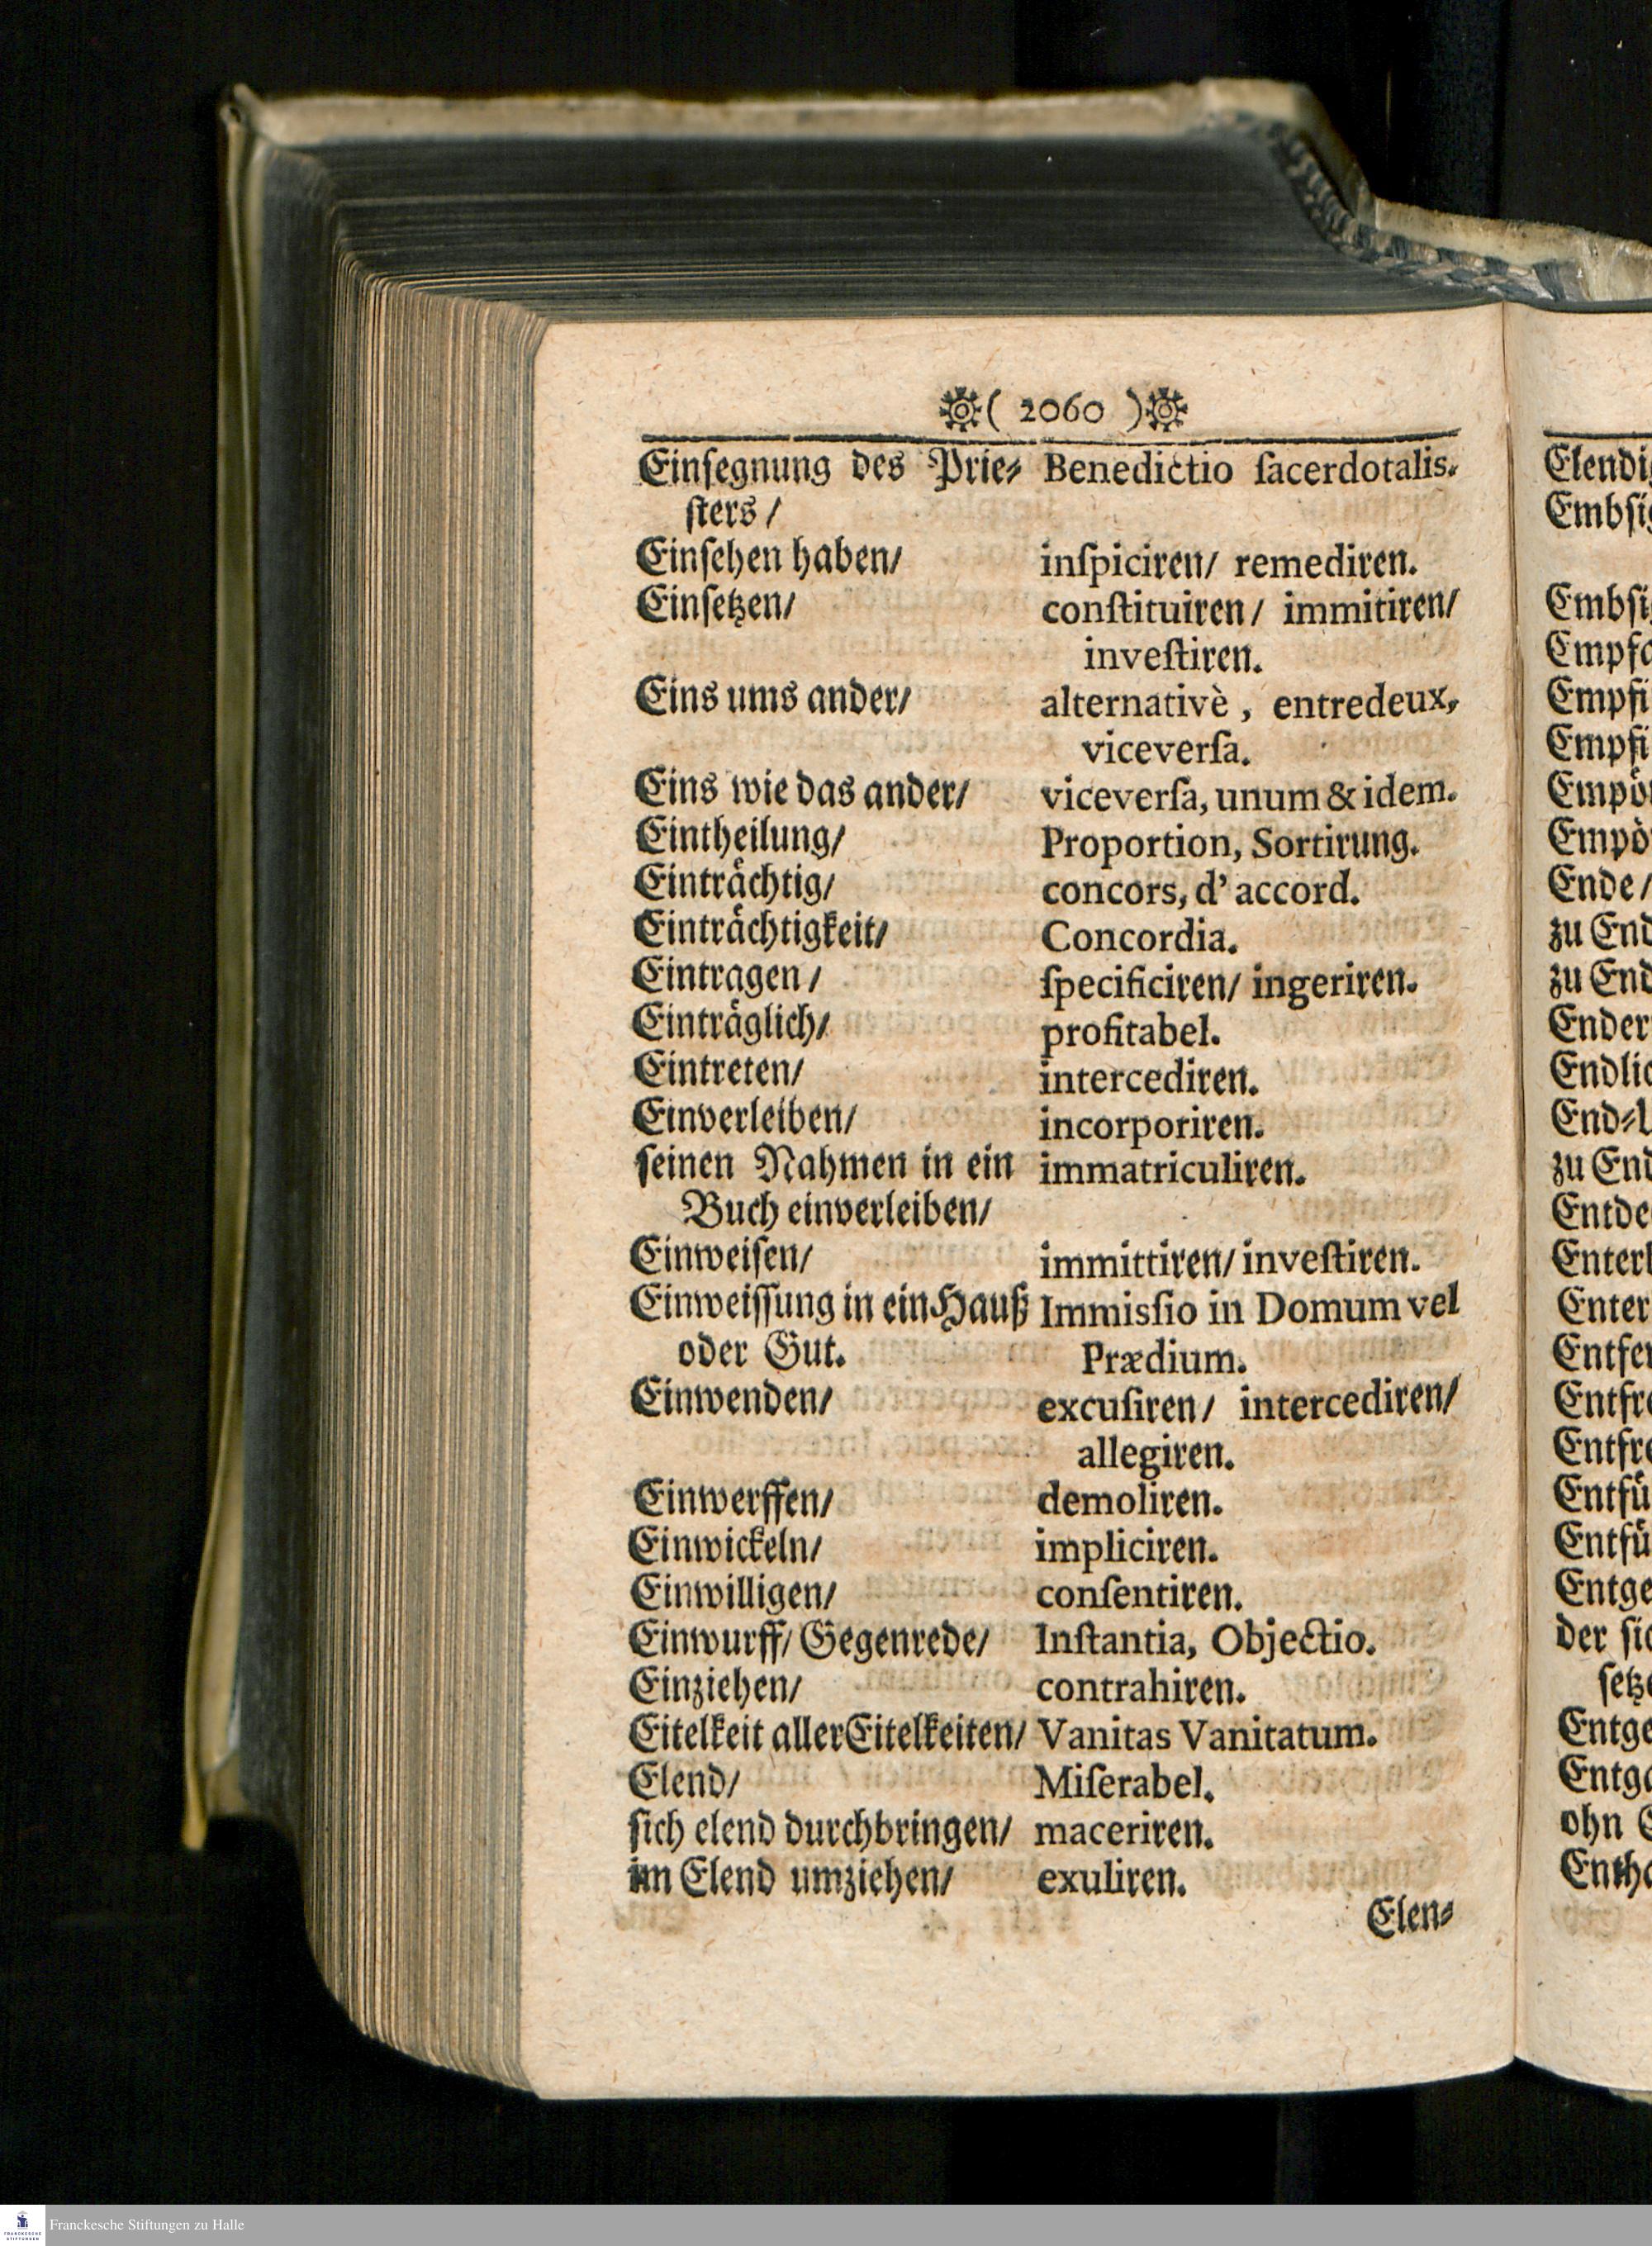 ( 2060 )
Einſegnung des Prie⸗ Benedictio ſacerdotalis.
ſters /
Einſehen haben/ inſpiciren/ remediren.
Einſetzen/ conſtituiren/ immitiren/
inveſtiren.
Eins ums ander/ alternativè, entredeux,
viceverſa.
Eins wie das ander/ viceverſa, unum & idem.
Eintheilung/ Proportion, Sortirung.
Einträchtig/ concors, d' accord.
Einträchtigkeit/ Concordia.
Eintragen / ſpecificiren/ ingeriren.
Einträglich/ profitabel.
Eintreten/ intercediren.
Einverleiben/ incorporiren.
ſeinen Nahmen in ein immatriculiren.
Buch einverleiben/
Einweiſen/ immittiren/ inveſtiren.
Einweiſſung in ein Hauß Immisſio in Domum vel
oder Gut. Prædium.
Einwenden/ excuſiren/ intercediren/
allegiren.
Einwerffen/ demoliren.
Einwickeln/ impliciren.
Einwilligen/ conſentiren.
Einwurff/ Gegenrede/ Inſtantia, Objectio.
Einziehen/ contrahiren.
Eitelkeit aller Eitelkeiten/ Vanitas Vanitatum.
Elend/ Miſerabel.
ſich elend durchbringen/ maceriren.
im Elend umziehen/ exuliren.
Elen⸗
Elendi
Embſi
Embſi
Empf
Empfi
Empfi
Empö
Empö
Ende/
zu End
zu End
Ender
Endlic
End⸗
zu End
Entde
Enter
Enter
Entfe
Entfr
Entfr
Entfü
Entfü
Entge
der ſic
ſetz
Entge
Entg
ohn
Enth
Franckesche Stiftungen zu Halle